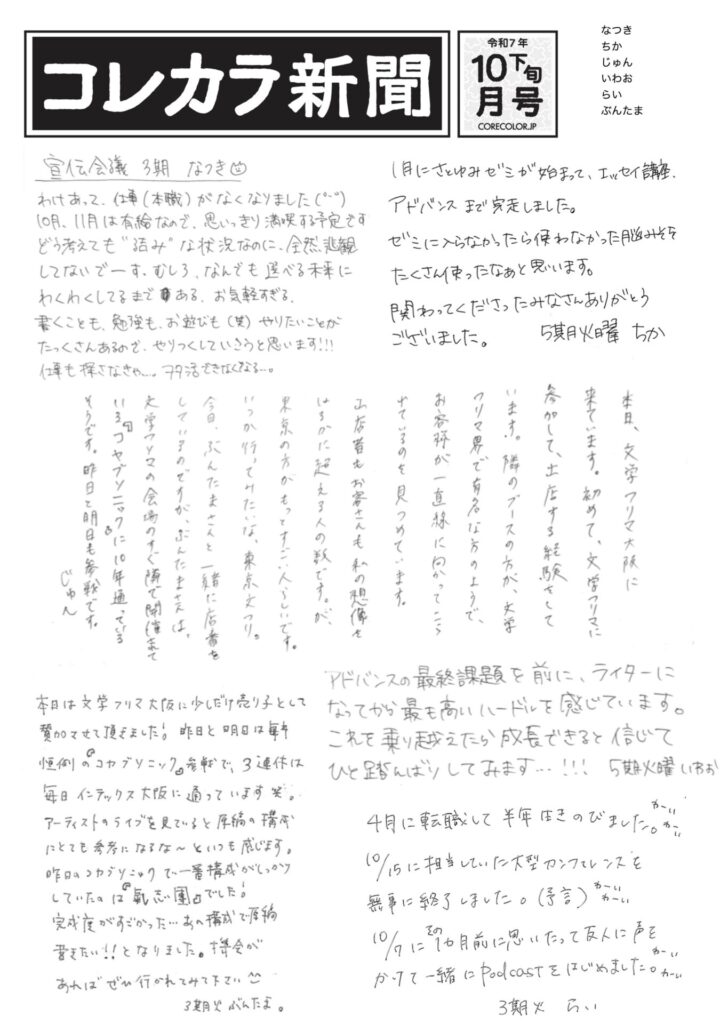 コレカラ新聞
令和7年
10月下旬号
CORECOLOR.JP
なつき
ちか
じゅん
いわお
らい
ぶんたま
宣伝会議 3期 なつき
わけあって、仕事(本職)がなくなりました(°-°)
10月、11月は有給なので、思いっきり満喫する予定です
どう考えても"詰み"な状況なのに、全然悲観
してないでーす、むしろ、なんでも選べる未来に
わくわくしてるまである、お気軽すぎる、
書くことも、勉強も、お遊びも(笑)やりたいことが
たっくさんあるので、やりつくしていきうと思います!!!
仕事も探さなきゃ…。ヲタ活できなくなる…。
1月にさとゆみゼミが始まって、エッセイ講座、
アドバンスまで完走しました。
ゼミに入らなかったら使わなかった脳みそを
たくさん使ったなぁと思います。
関わってくださったみなさんありがとう
ございました。 5期火曜 ちか
本日、文学フリマ大阪に
来ています。初めて、文学フリマに
参加して、出店する経験をして
います。隣のブースの方が、文学
フリマ界で有名な方のようで、
お客様が一直線に向かってこら
れているのを見つめています。
出店者もお客さんも私の想像を
はるかに超える人の数です。が、
東京の方がもっとすごい人らしいです。
いつか行ってみたいな、東京文フリ。
今日、ぶんたまさんと一緒に店番を
しているのですが、ぶんたまさんは、
文学フリマの会場のすぐ隣で開催されて
いる『コヤブソニック』に10年通っている
そうです。昨日と明日も参戦です。
じゅん
本日は文学フリマ大阪に少しだけ売り子として
参加させて頂きました!昨日と明日は毎年
恒例の『コヤブソニック』参戦で、3連休は
毎日インテックス大阪に通っています笑。
アーティストのライブを見ていると原稿の構成
にとても参考になるな〜といつも感じます。
昨日のコヤブソニックで一番構成がしっかり
していたのは『氣志團』でした!
完成度がすごかった…あの構成で原稿
書きたい!!となりました。機会が
あればぜひ行かれてみて下さい
3期火 ぶんたま。
アドバンスの最終課題を前に、ライターに
なってから最も高いハードルを感じています。
これを乗り越えたら成長できると信じて
ひと踏んばりしてみます…!!! 5期火曜 いわお
4月に転職して半年生きのびました。かーいかーい
10/15に担当していた大型カンファレンスを
無事に終了しました。(予言)かーいかーい
10/7にその1ヵ月前に思いたって友人に声を
かけて一緒にpodcastをはじめました。かーいかーい
3期火 らい